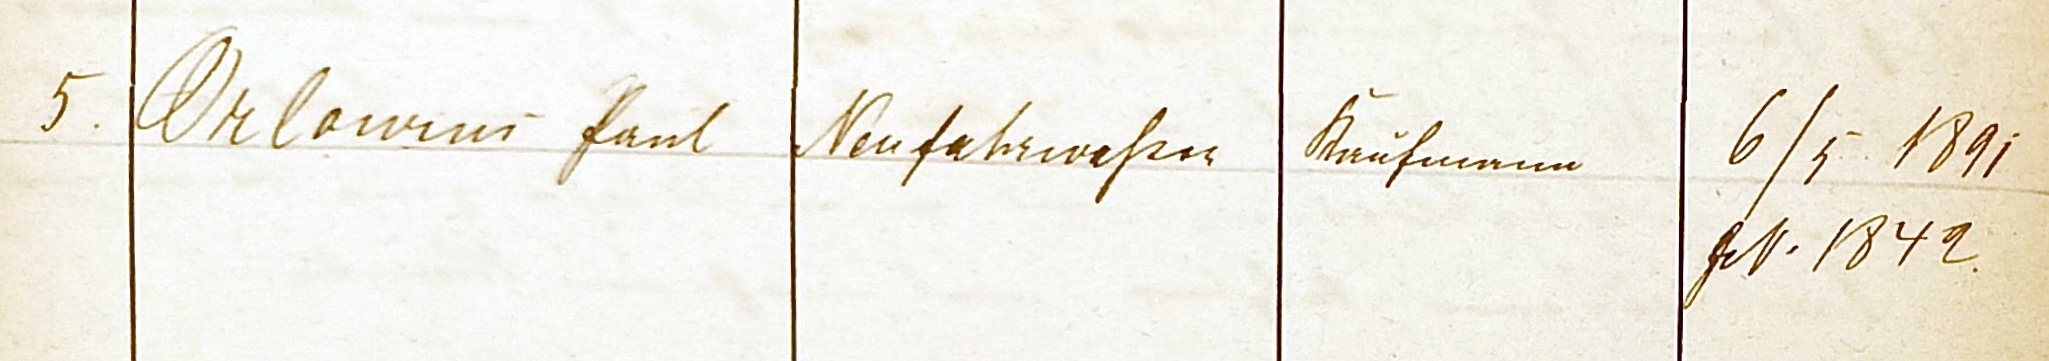 5. Orlovius Paul Neufahrwasser Kaufmann 6/5 1891
geb. 1842.